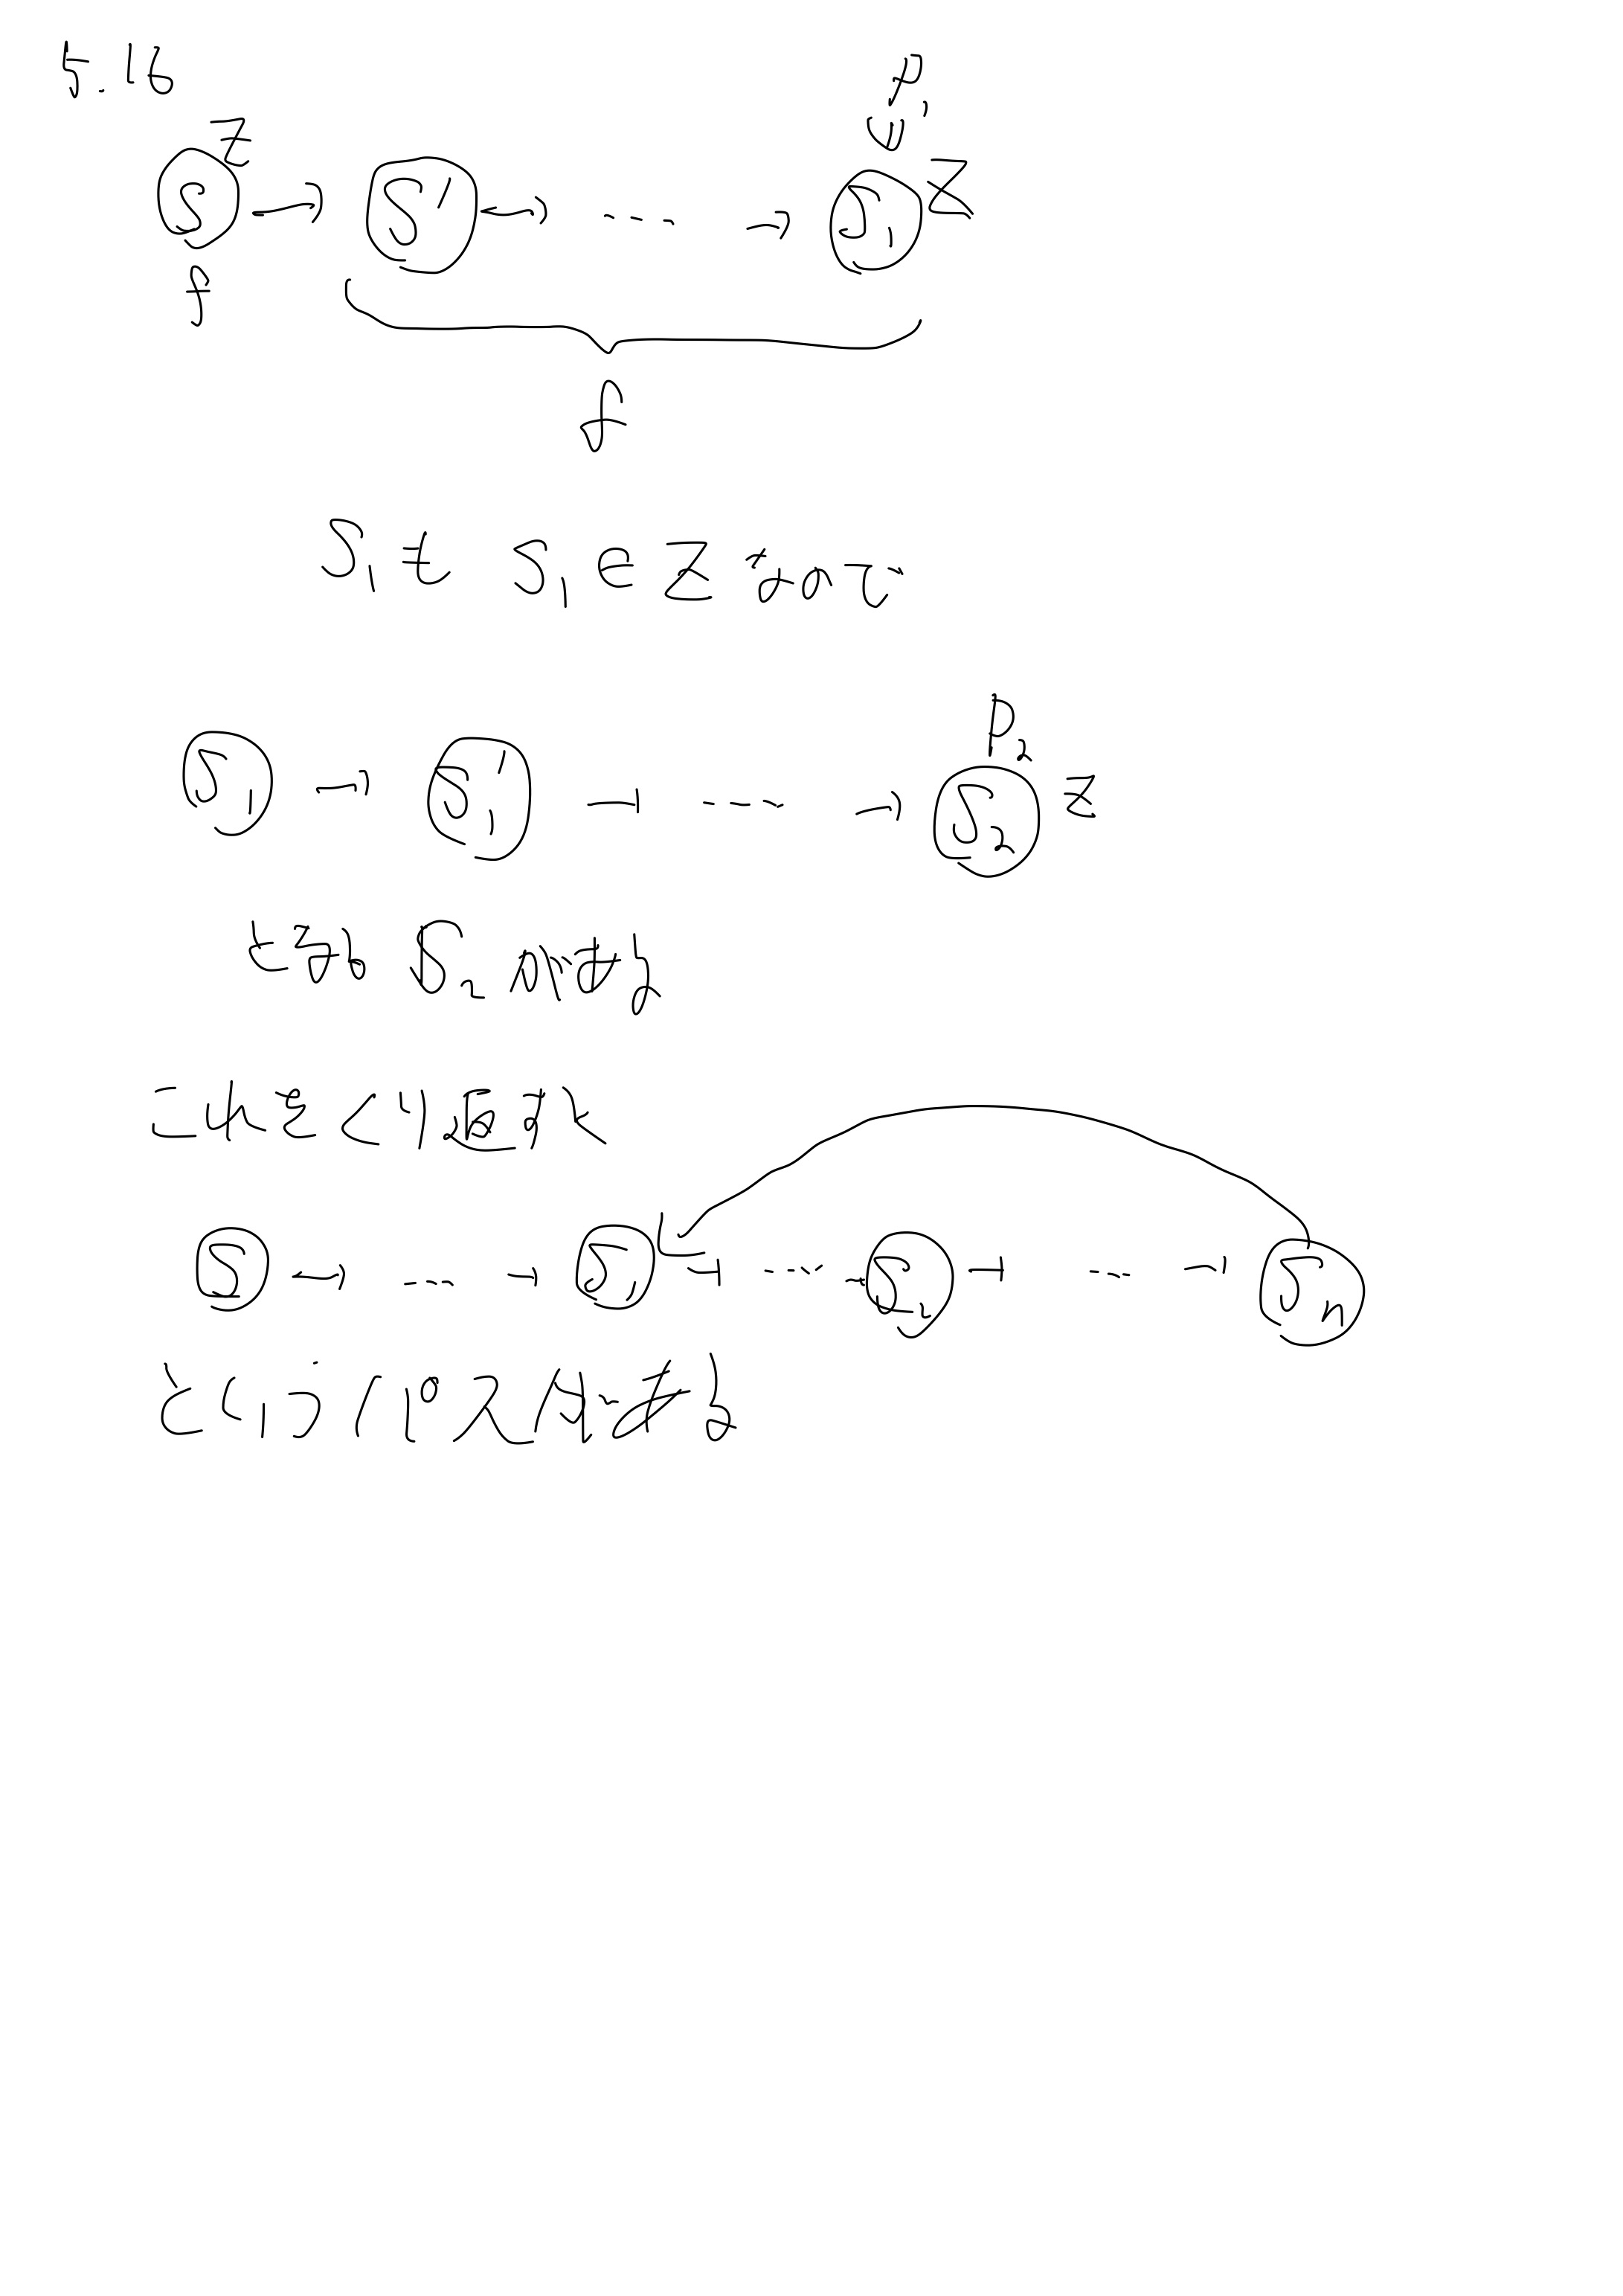 5.16
Z P₁
S → S' → ... → S₁ Z
f
f
S₁も S₁∈Zなので
P₂
S₁ → S₁' → ... → S₂ Z
となる S₂ がある
これをくり返すと
S → ... → S₁ → ... → S₂ → ... → Sₙ
というパスがある